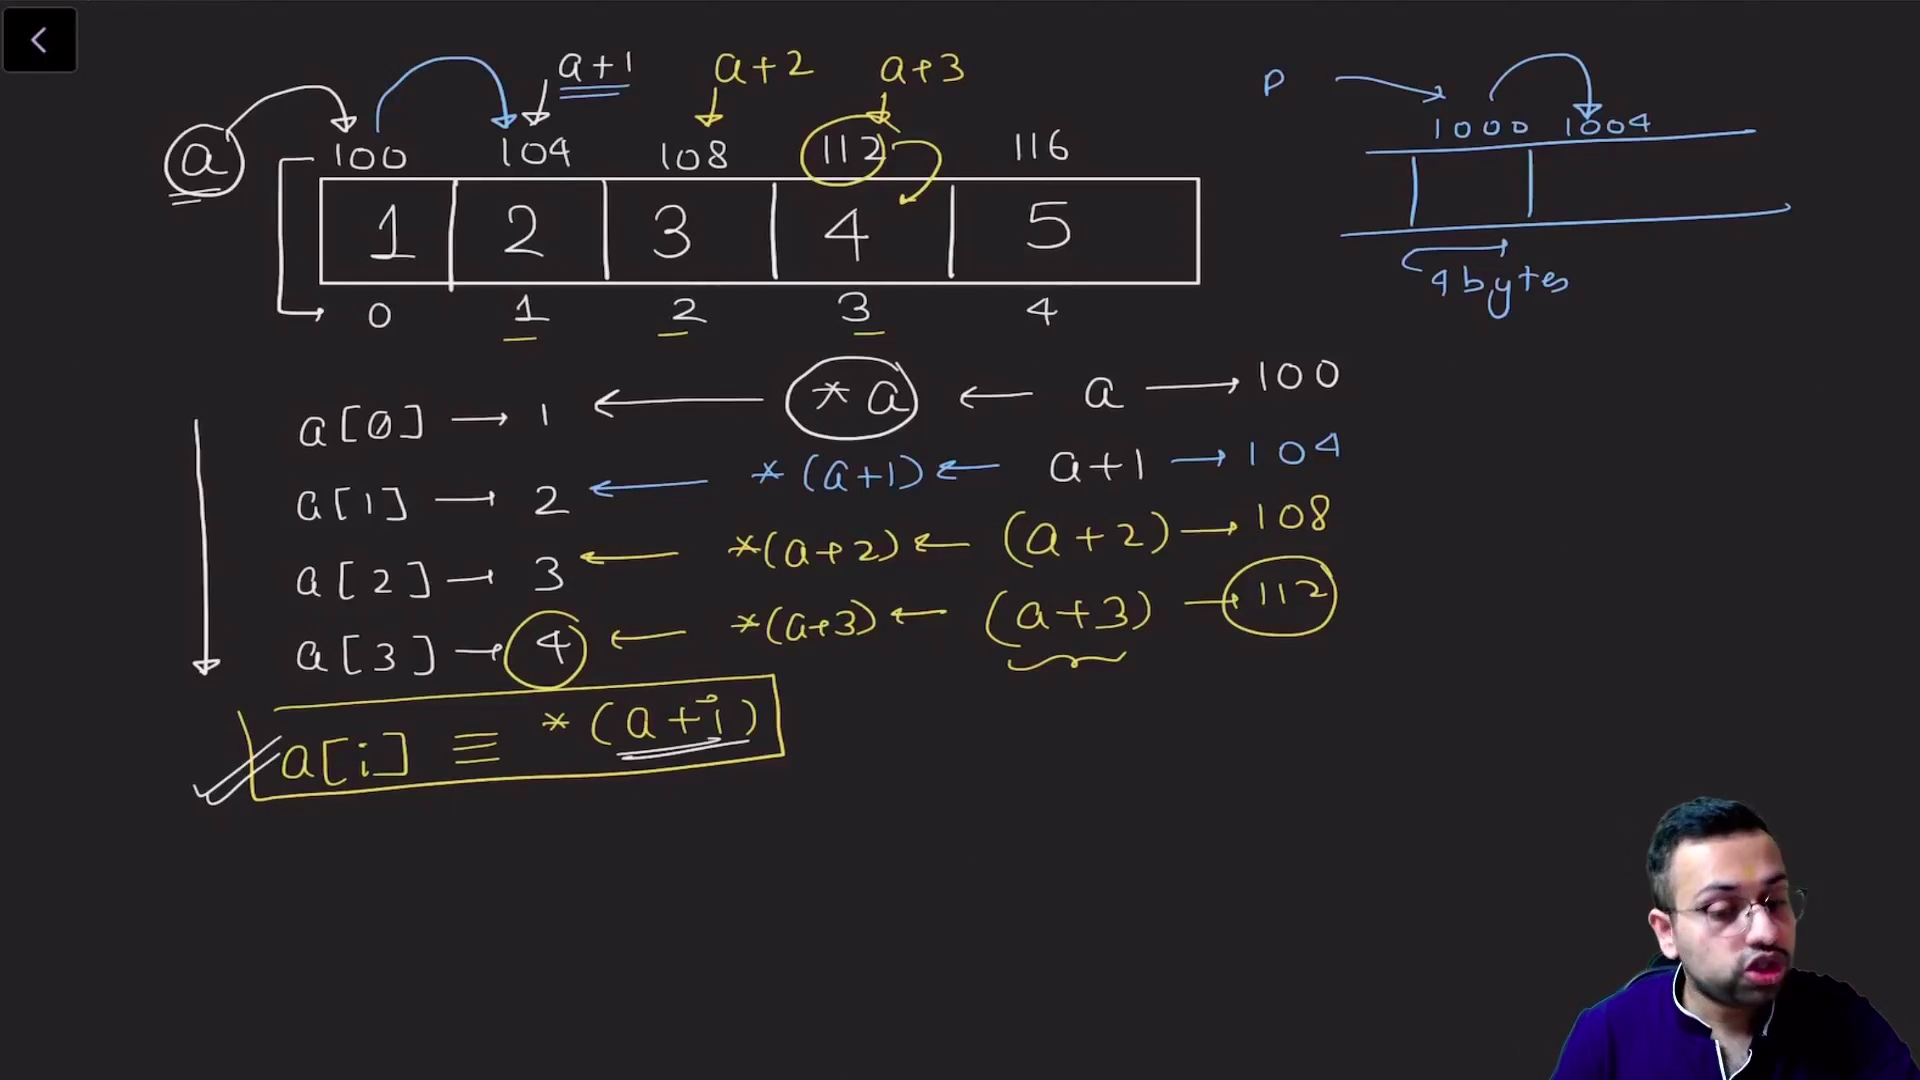 a+1 a+2 a+3
a 100 104 108 112 116
1 2 3 4 5
0 1 2 3 4
P → 1000 1004
4 bytes
a[0] → 1 ← *a ← a → 100
a[1] → 2 ← *(a+1) ← a+1 → 104
a[2] → 3 ← *(a+2) ← (a+2) → 108
a[3] → 4 ← *(a+3) ← (a+3) → 112
a[i] ≡ *(a+i)